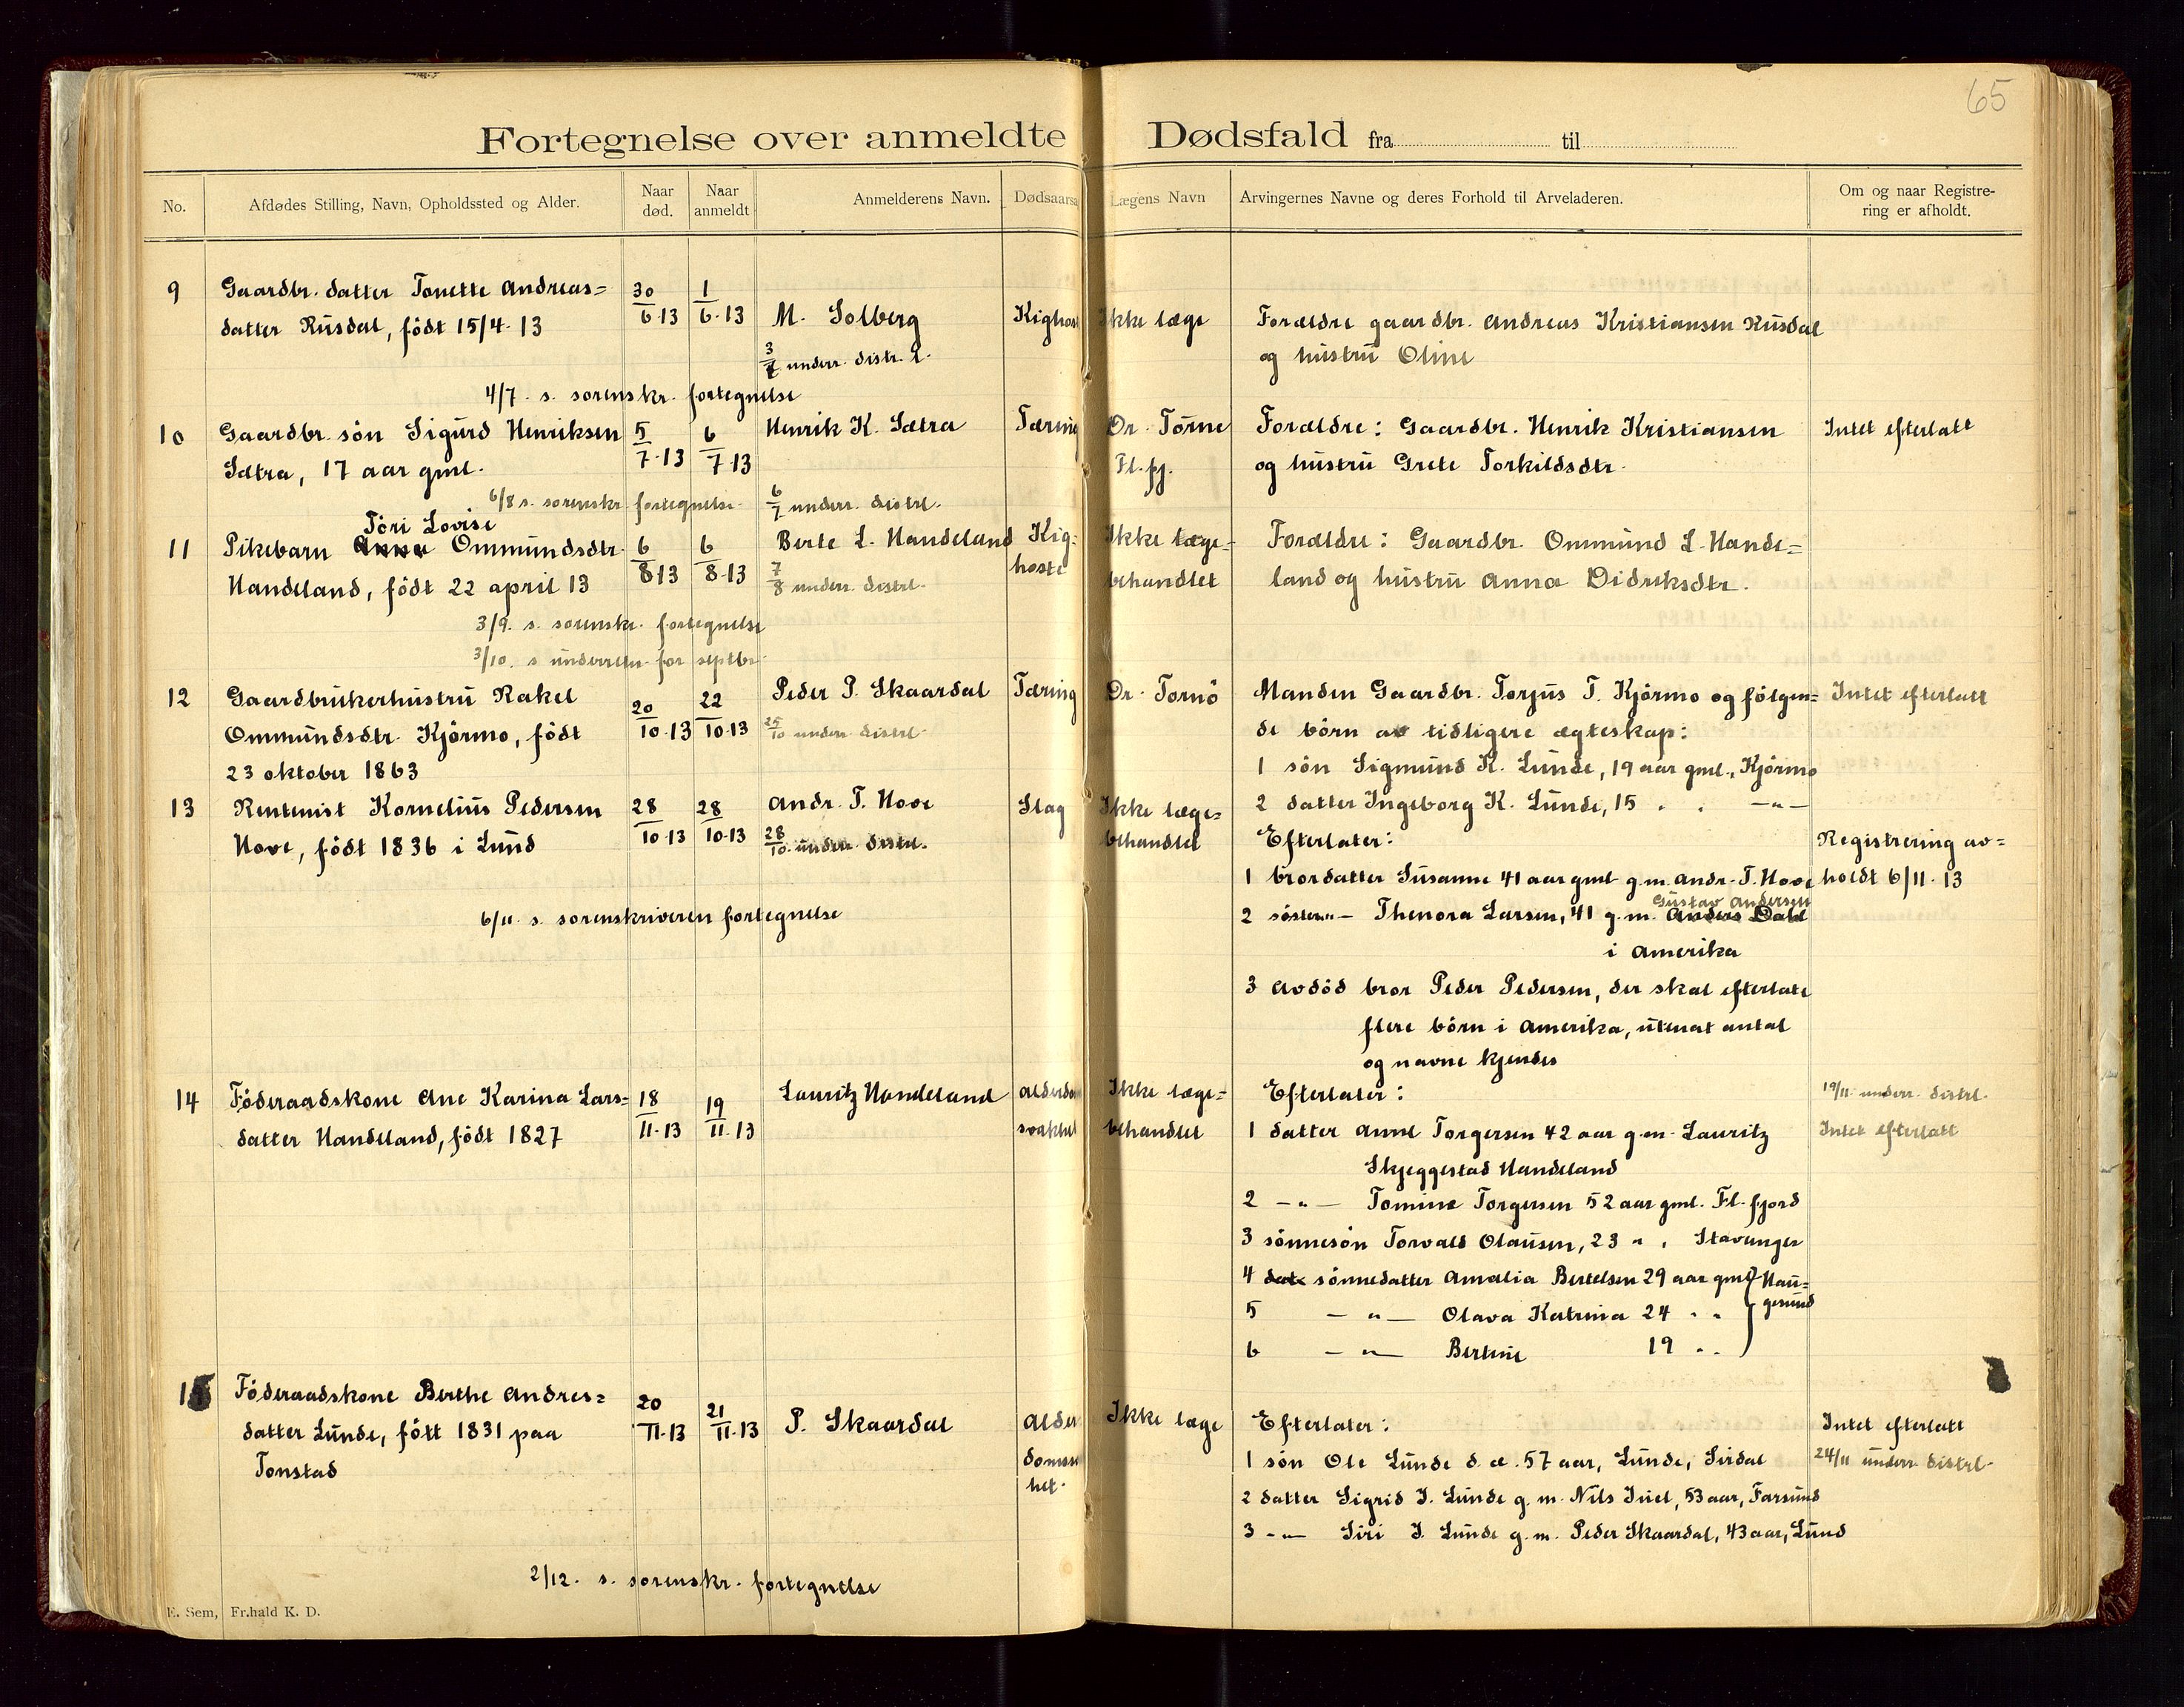 65
Fortegnelse over anmeldte Dødsfald fra til
No.
Afdødes Stilling, Navn, Opholdssted og Alder.
Naar død.
Naar anmeldt
Anmelderens Navn.
Dødsaarsa
Lægens Navn
Arvingernes Navne og deres Forhold til Arveladeren.
Om og naar Registre-
ring er afholdt.
9
Gaardbr. datter Tonette Andreas=
datter Rusdal, födt 15/4. 13
30/6.13
1/6.13
M. Solberg
3/7 underr. distr. l.
Kighost
Ikke læge
Forældre gaardbr. Andreas Kristiansen Rusdal
og hustru Oline
4/7. s. sorenskr. fortegnelse
10
Gaardbr. sön Sigurd Henriksen
Sætra, 17 aar gml.
5/7.13
6/7.13
Henrik K. Sætra
6/7 underr. distrl.
Tæring
Dr. Torne
Fl.fj.
Forældre: Gaardbr. Henrik Kristiansen
og hustru Grete Torkildsdtr.
Intet efterlatt
6/8 s. sorenskr. fortegnelse
Töri Lovise
11
Pikebarn Anna Ommundsdtr.
Handeland, födt 22 april 13
6/8.13
6/8.13
Berte L. Handeland
7/8 underr. distrl.
Kig=
hoste
Ikke læge=
behandlet
Forældre: Gaardbr. Ommund L. Hande=
land og hustru Anna Didriksdtr.
3/9. s. sorenskr. fortegnelse
3/10. s underretn. for septbr.
12
Gaardbrukerhustru Rakel
Ommundsdtr. Kjörmo, födt
23 oktober 1863
20/10.13
22/10.13
Peder P. Skaardal
25/10 underr. distrl.
Tæring
Dr. Tornö
Manden Gaardbr. Torjus T. Kjörmo og fölgen=
de börn av tidligere ægteskap:
1 sön Sigmund K. Lunde, 19 aar gml., Kjörmo
2 datter Ingeborg K. Lunde, 15 . . —"—
Intet efterlatt
13
Rentenist Kornelius Pedersen
Hove, födt 1836 i Lund
28/10.13
28/10.13
Andr. T. Hove
28/10. underr. distrl.
Slag
Ikke læge=
behandlet
Efterlater:
1 brordatter Susanne 41 aar gml g.m. Andr. T. Hove
Gustav Andersen
2 söster"— Thenora Larsen, 41 g.m. Anders Dahl
i Amerika
3 Avdöd bror Peder Pedersen, der skal efterlate
flere börn i Amerika, utenat antal
og navne kjendes
Registrering av=
holdt 6/11. 13
6/11. s. sorenskriveren fortegnelse
14
Föderaadskone Ane Karina Lars=
datter Handeland, födt 1827
18/11.13
19/11.13
Lauritz Handeland
Alderdo
svakhet
Ikke læge=
behandlet
Efterlater:
1 datter Anne Torgersen 42 aar g.m. Lauritz
Skjeggestad Handeland
2 —"— Tomine Torgersen 52 aar gml. Fl.fjord
3 sönnesön Torvald Olausen, 23 " . Stavanger
4 dat sönnedatter Amalia Bertelsen 29 aar gml Hau=
gesund
5 —"— Olava Katrina 24 . .
6 —"— Bertine 19 . .
19/11 underr. distrl.
Intet efterlatt
15
Föderaadskone Berthe Andres=
datter Lunde, fött 1831 paa
Tonstad
20/11.13
21/11.13
P. Skaardal
Alder
domss
het.
Ikke læge
Efterlater:
1 sön Ole Lunde d. æ. 57 aar, Lunde, Sirdal
2 datter Sigrid J. Lunde g. m. Nils Juel, 53 aar, Farsund
3 —"— Siri J. Lunde g. m. Peder Skaardal, 43 aar, Lund
Intet efterlatt
24/11 underr. distrl.
2/12. s. sorenskr. fortegnelse
E. Sem, Fr.hald K. D.